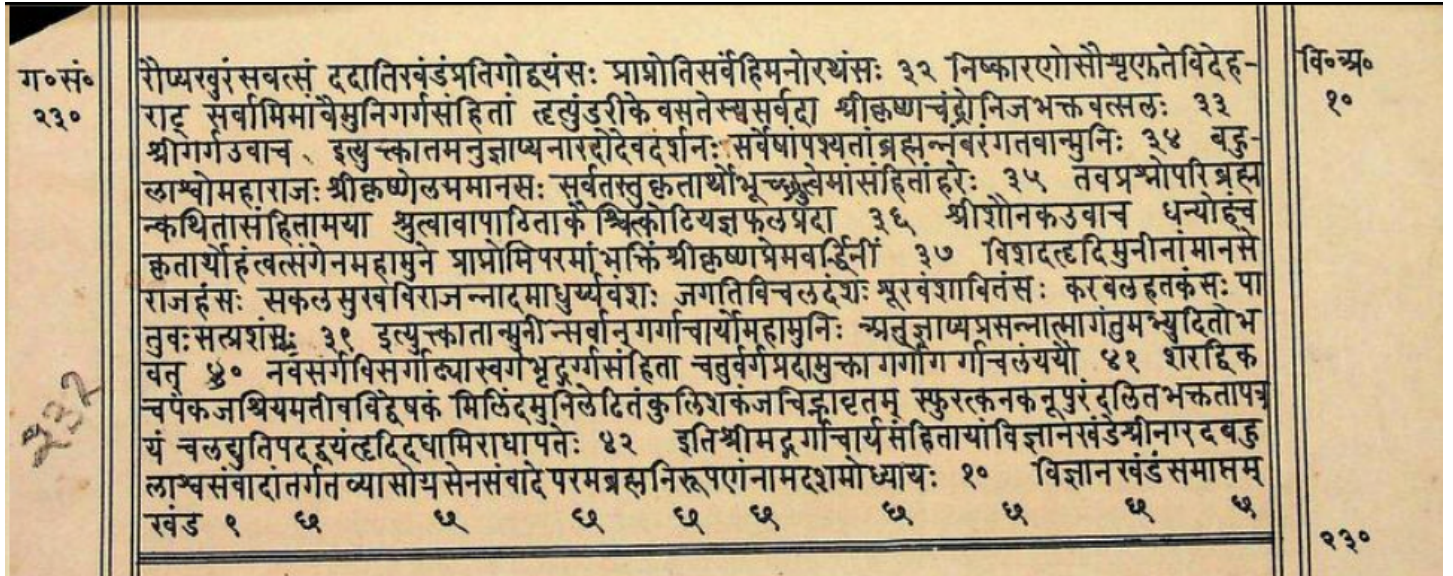 ग॰सं॰
२३०
रौप्यखुरंसवत्सं ददातिखंडंप्रतिगोद्वयंसः प्राप्नोतिसर्वंहिमनोरथंसः ३२ निष्कारणोसौशृणुतेविदेह-
राट् सर्वामिमांवैमुनिगर्गसंहितां हृत्पुंडरीकेवसतेस्यसर्वदा श्रीकृष्णचंद्रोनिजभक्तवत्सलः ३३
श्रीगर्गउवाच इत्युक्त्वातमनुज्ञाप्यनारदोदेवदर्शनः सर्वेषांपश्यतांब्रह्मन्नंबरंगतवान्मुनिः ३४ बहु-
लाश्वोमहाराजः श्रीकृष्णेलग्नमानसः सर्वतस्तुकृतार्थोभूच्छ्रुत्वेमांसंहितांहरेः ३५ तवप्रश्नोपरिब्रह्म
न्कथितासंहितामया श्रुत्वावापाठिताकैश्चित्कोटियज्ञफलप्रदा ३६ श्रीशौनकउवाच धन्योहंच
कृतार्थोहंत्वत्संगेनमहामुने प्राप्नोमिपरमांभक्तिंश्रीकृष्णप्रेमवर्द्धिनीं ३७ विशदहृदिमुनीनांमानसे
राजहंसः सकलसुखविराजन्नादमाधुर्य्यवंशः जगतिविचलदंशः शूरवंशावितंसः करबलहतकंसः पा
तुवःसत्प्रशंसः ३९ इत्युक्त्वातान्मुनीन्सर्वान् गर्गाचार्योमहामुनिः अनुज्ञाप्यप्रसन्नात्मागंतुमभ्युदितोभ
वत् ४० नवसर्गविसर्गाढ्यास्वर्गभृद्गर्गसंहिता चतुर्वर्गप्रदामुक्ता गर्गोगर्गाचलंययौ ४१ शरद्विक
चपंकजश्रियमतीवविद्वेषकं मिलिंदमुनिलेढितंकुलिशकंजचिह्नावृतम् स्फुरत्कनकनूपुरंदलितभक्ततापत्र
यं चलद्युतिपदद्वयंहृदिदधामिराधापतेः ४२ इतिश्रीमद्गर्गाचार्यसंहितायांविज्ञानखंडेश्रीनारदबहु
लाश्वसंवादांतर्गतव्यासोग्रसेनसंवादेपरमब्रह्मनिरूपणंनामदशमोध्यायः १० विज्ञानखंडंसमाप्तम्
खंड ९ ध्ध ध्ध ध्ध ध्ध ध्ध ध्ध ध्ध ध्ध ध्ध
वि॰अ॰
१०
२३०
232